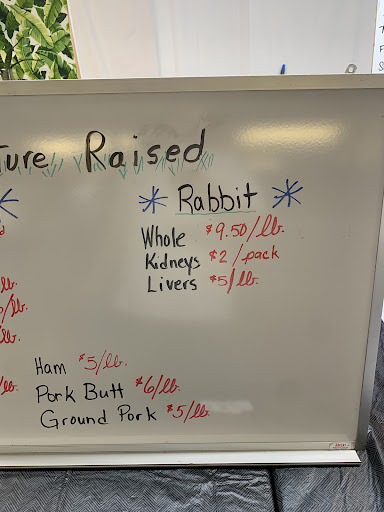 ture Raised
* Rabbit *
Whole $9.50/lb.
Kidneys $2/pack
Livers $5/lb.
lb.
/lb.
lb.
Ham $5/lb.
/lb. Pork Butt $6/lb.
Ground Pork $5/lb.